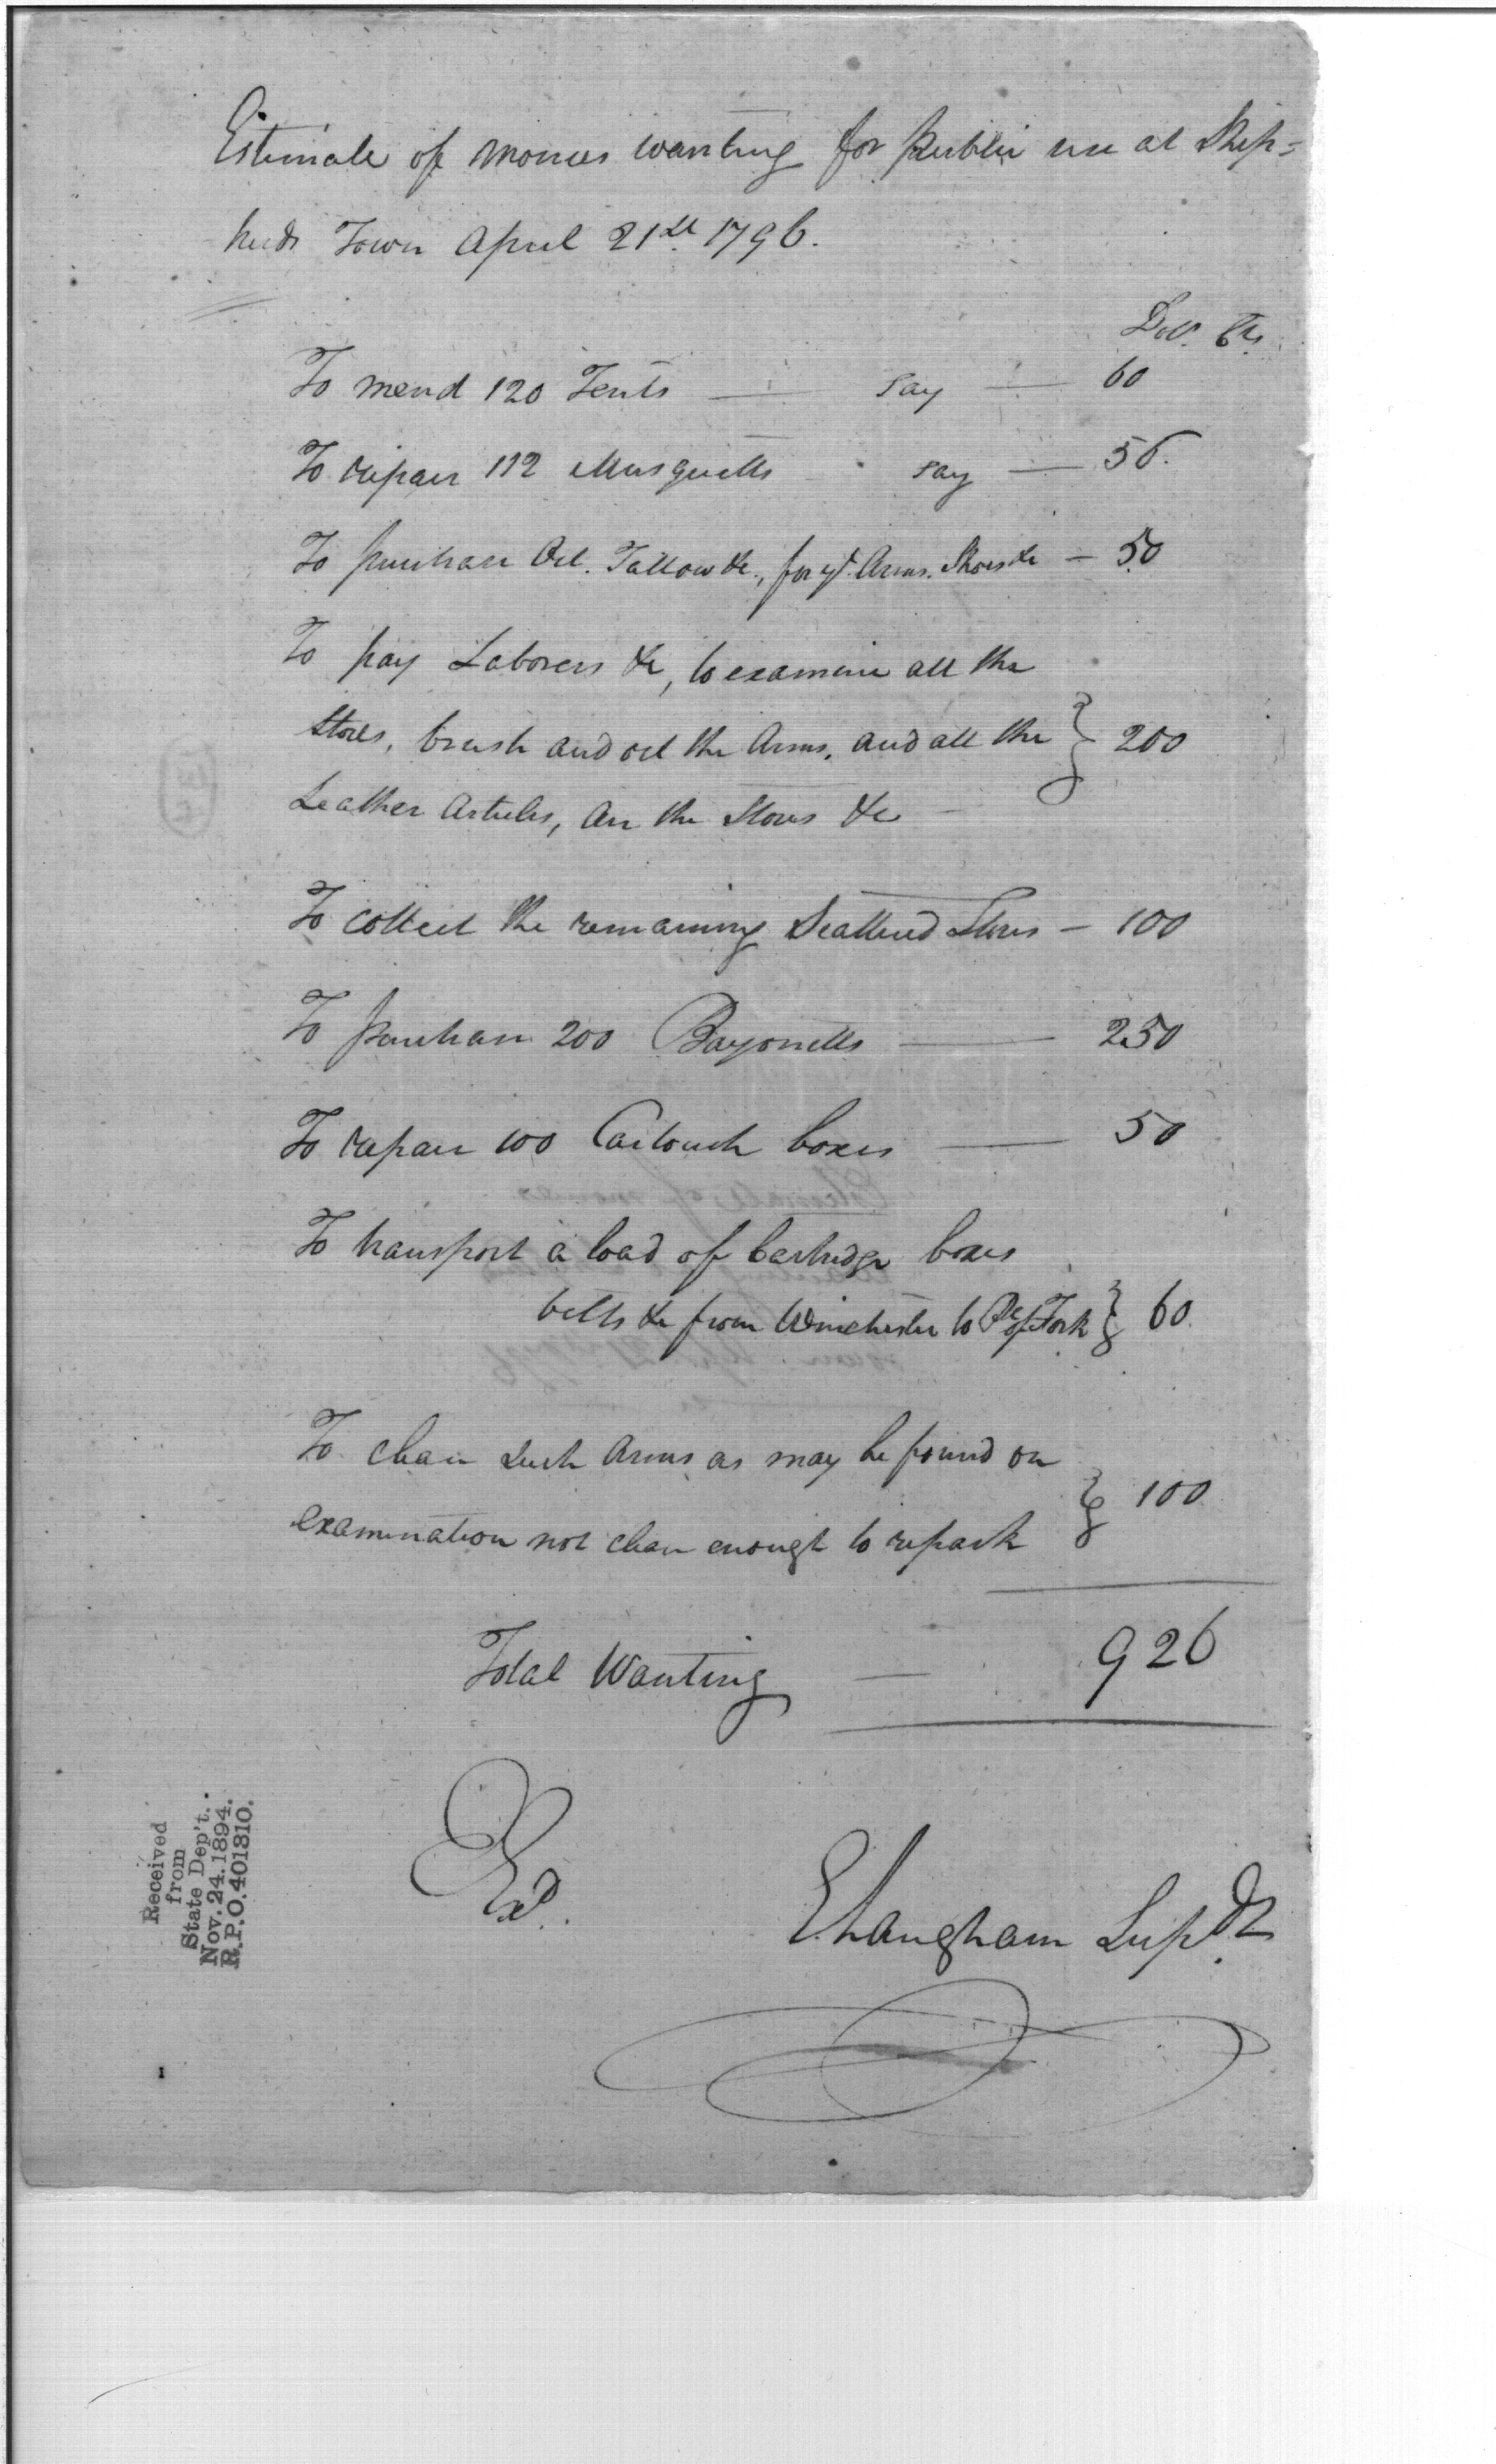 Estimate of monies wanting for public use at Shep=
herds Town April 21st 1796.
Doll. Cts.
To mend 120 Tents — say — 60
To repair 112 Musquetts say — 56.
To purchase Oil. Tallow &c., for ye. Arms. Shoes &c — 50
To pay Laborers &c, to examine all the
Stores, brush and oil the Arms, and all the } 200
Leather Articles, Air the Stores &c
To collect the remaining Scattered Stores — 100
To purchase 200 Bayonetts — 250
To repair 100 Cartouch boxes — 50
To transport a load of Cartridge boxes
belts &c from Winchester to Pt. of Fork } 60
To clean such Arms as may be found on
examination not clean enough to repack } 100
Total Wanting — 926
Exd.
E Langham Supdt
Received
from
State Dep't.
Nov. 24. 1894.
R.P.O. 401810.